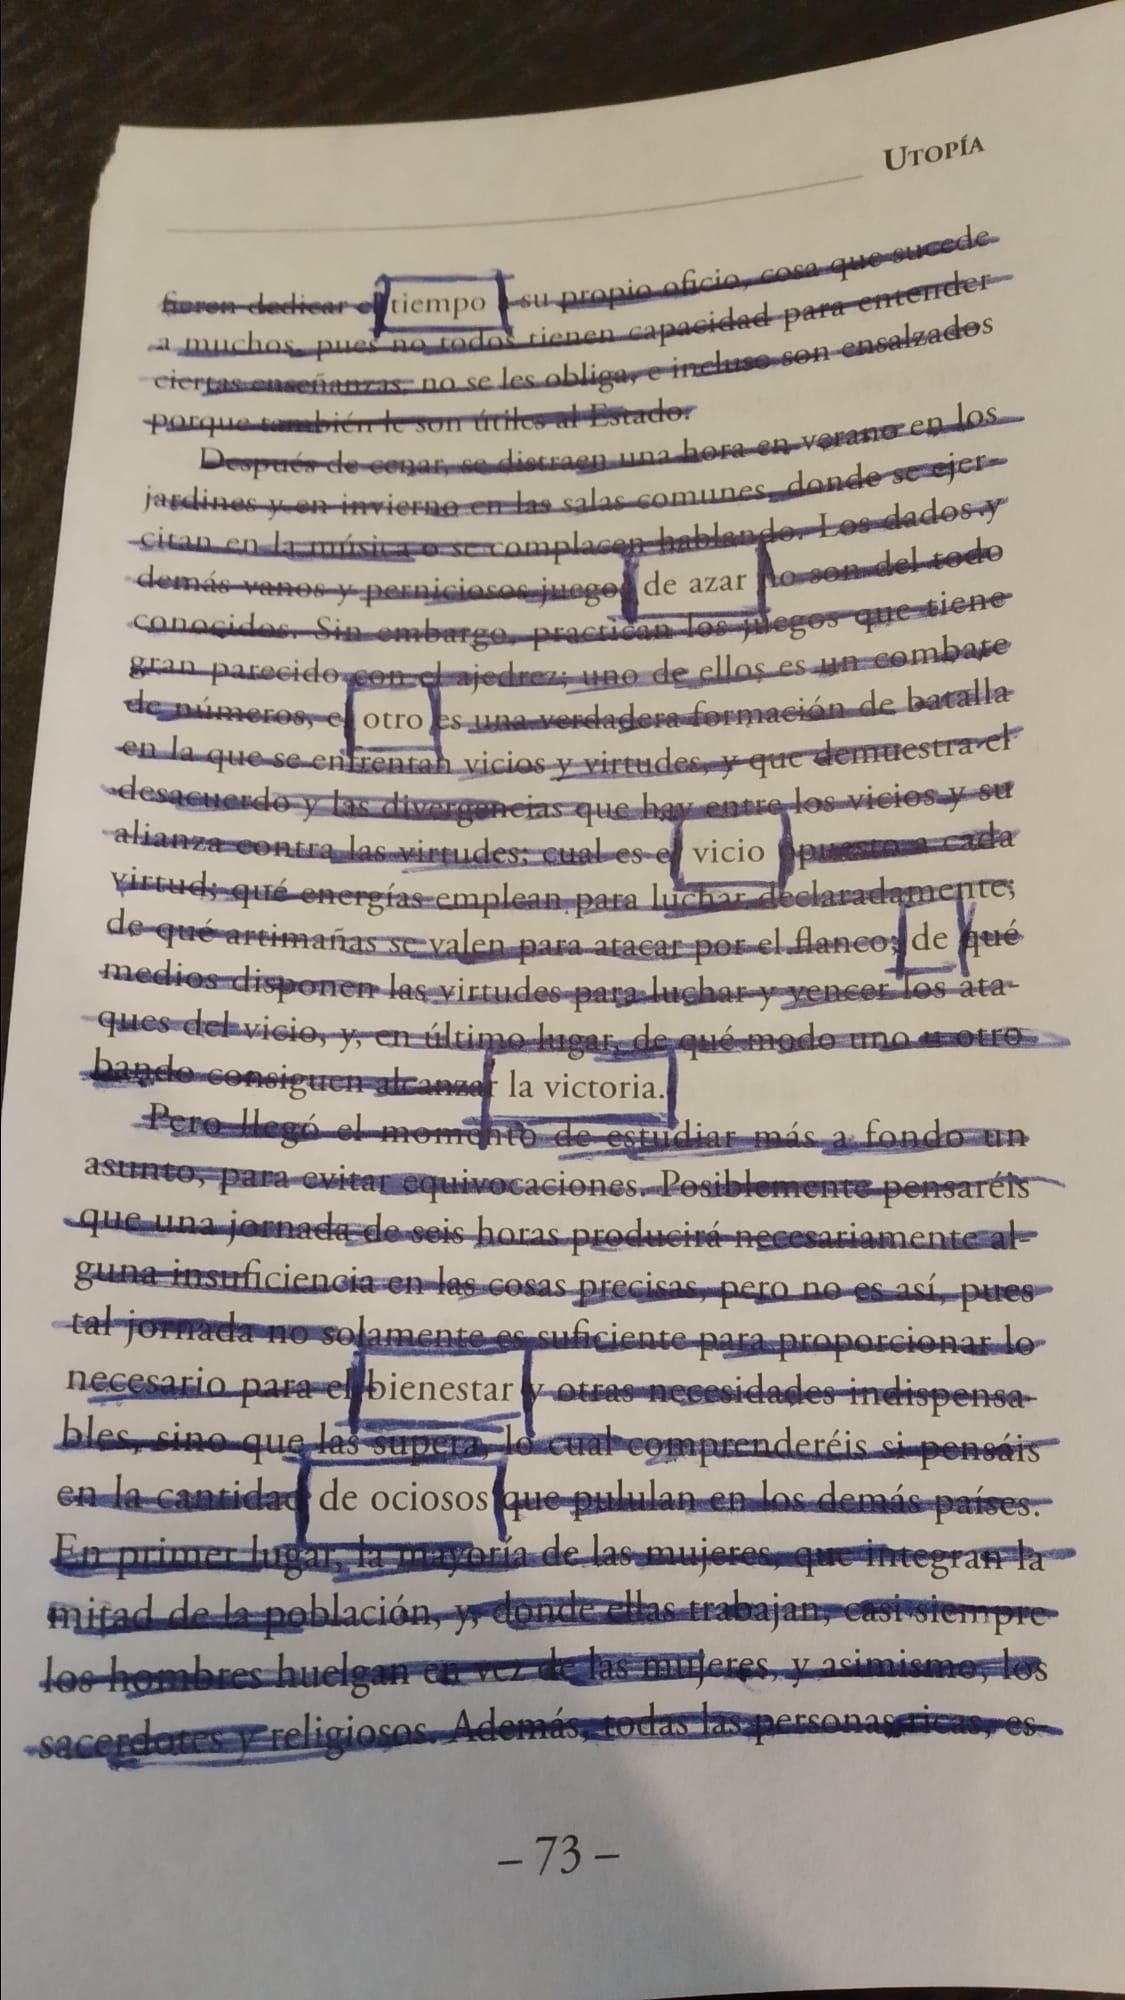 UTOPÍA
fieren dedicar el tiempo a su propio oficio, cosa que sucede
a muchos, pues no todos tienen capacidad para entender
ciertas enseñanzas, no se les obliga, e incluso son ensalzados
porque también le son útiles al Estado.
Después de cenar, se distraen una hora en verano en los
jardines y en invierno en las salas comunes, donde se ejer-
citan en la música o se complacen hablando. Los dados y
demás vanos y perniciosos juegos de azar no son del todo
conocidos. Sin embargo, practican los juegos que tiene
gran parecido con el ajedrez; uno de ellos es un combate
de números, el otro es una verdadera formación de batalla
en la que se enfrentan vicios y virtudes, y que demuestra el
desacuerdo y las divergencias que hay entre los vicios y su
alianza contra las virtudes: cual es el vicio opuesto a cada
virtud; qué energías emplean para luchar declaradamente;
de qué artimañas se valen para atacar por el flanco; de qué
medios disponen las virtudes para luchar y vencer los ata-
ques del vicio, y, en último lugar, de qué modo uno u otro
bando consiguen alcanzar la victoria.
Pero llegó el momento de estudiar más a fondo un
asunto, para evitar equivocaciones. Posiblemente pensaréis
que una jornada de seis horas producirá necesariamente al-
guna insuficiencia en las cosas precisas, pero no es así, pues
tal jornada no solamente es suficiente para proporcionar lo
necesario para el bienestar y otras necesidades indispensa-
bles, sino que las supera, lo cual comprenderéis si pensáis
en la cantidad de ociosos que pululan en los demás países.
En primer lugar, la mayoría de las mujeres, que integran la
mitad de la población, y, donde ellas trabajan, casi siempre
los hombres huelgan en vez de las mujeres, y asimismo, los
sacerdotes y religiosos. Además, todas las personas ricas, es-
– 73 –